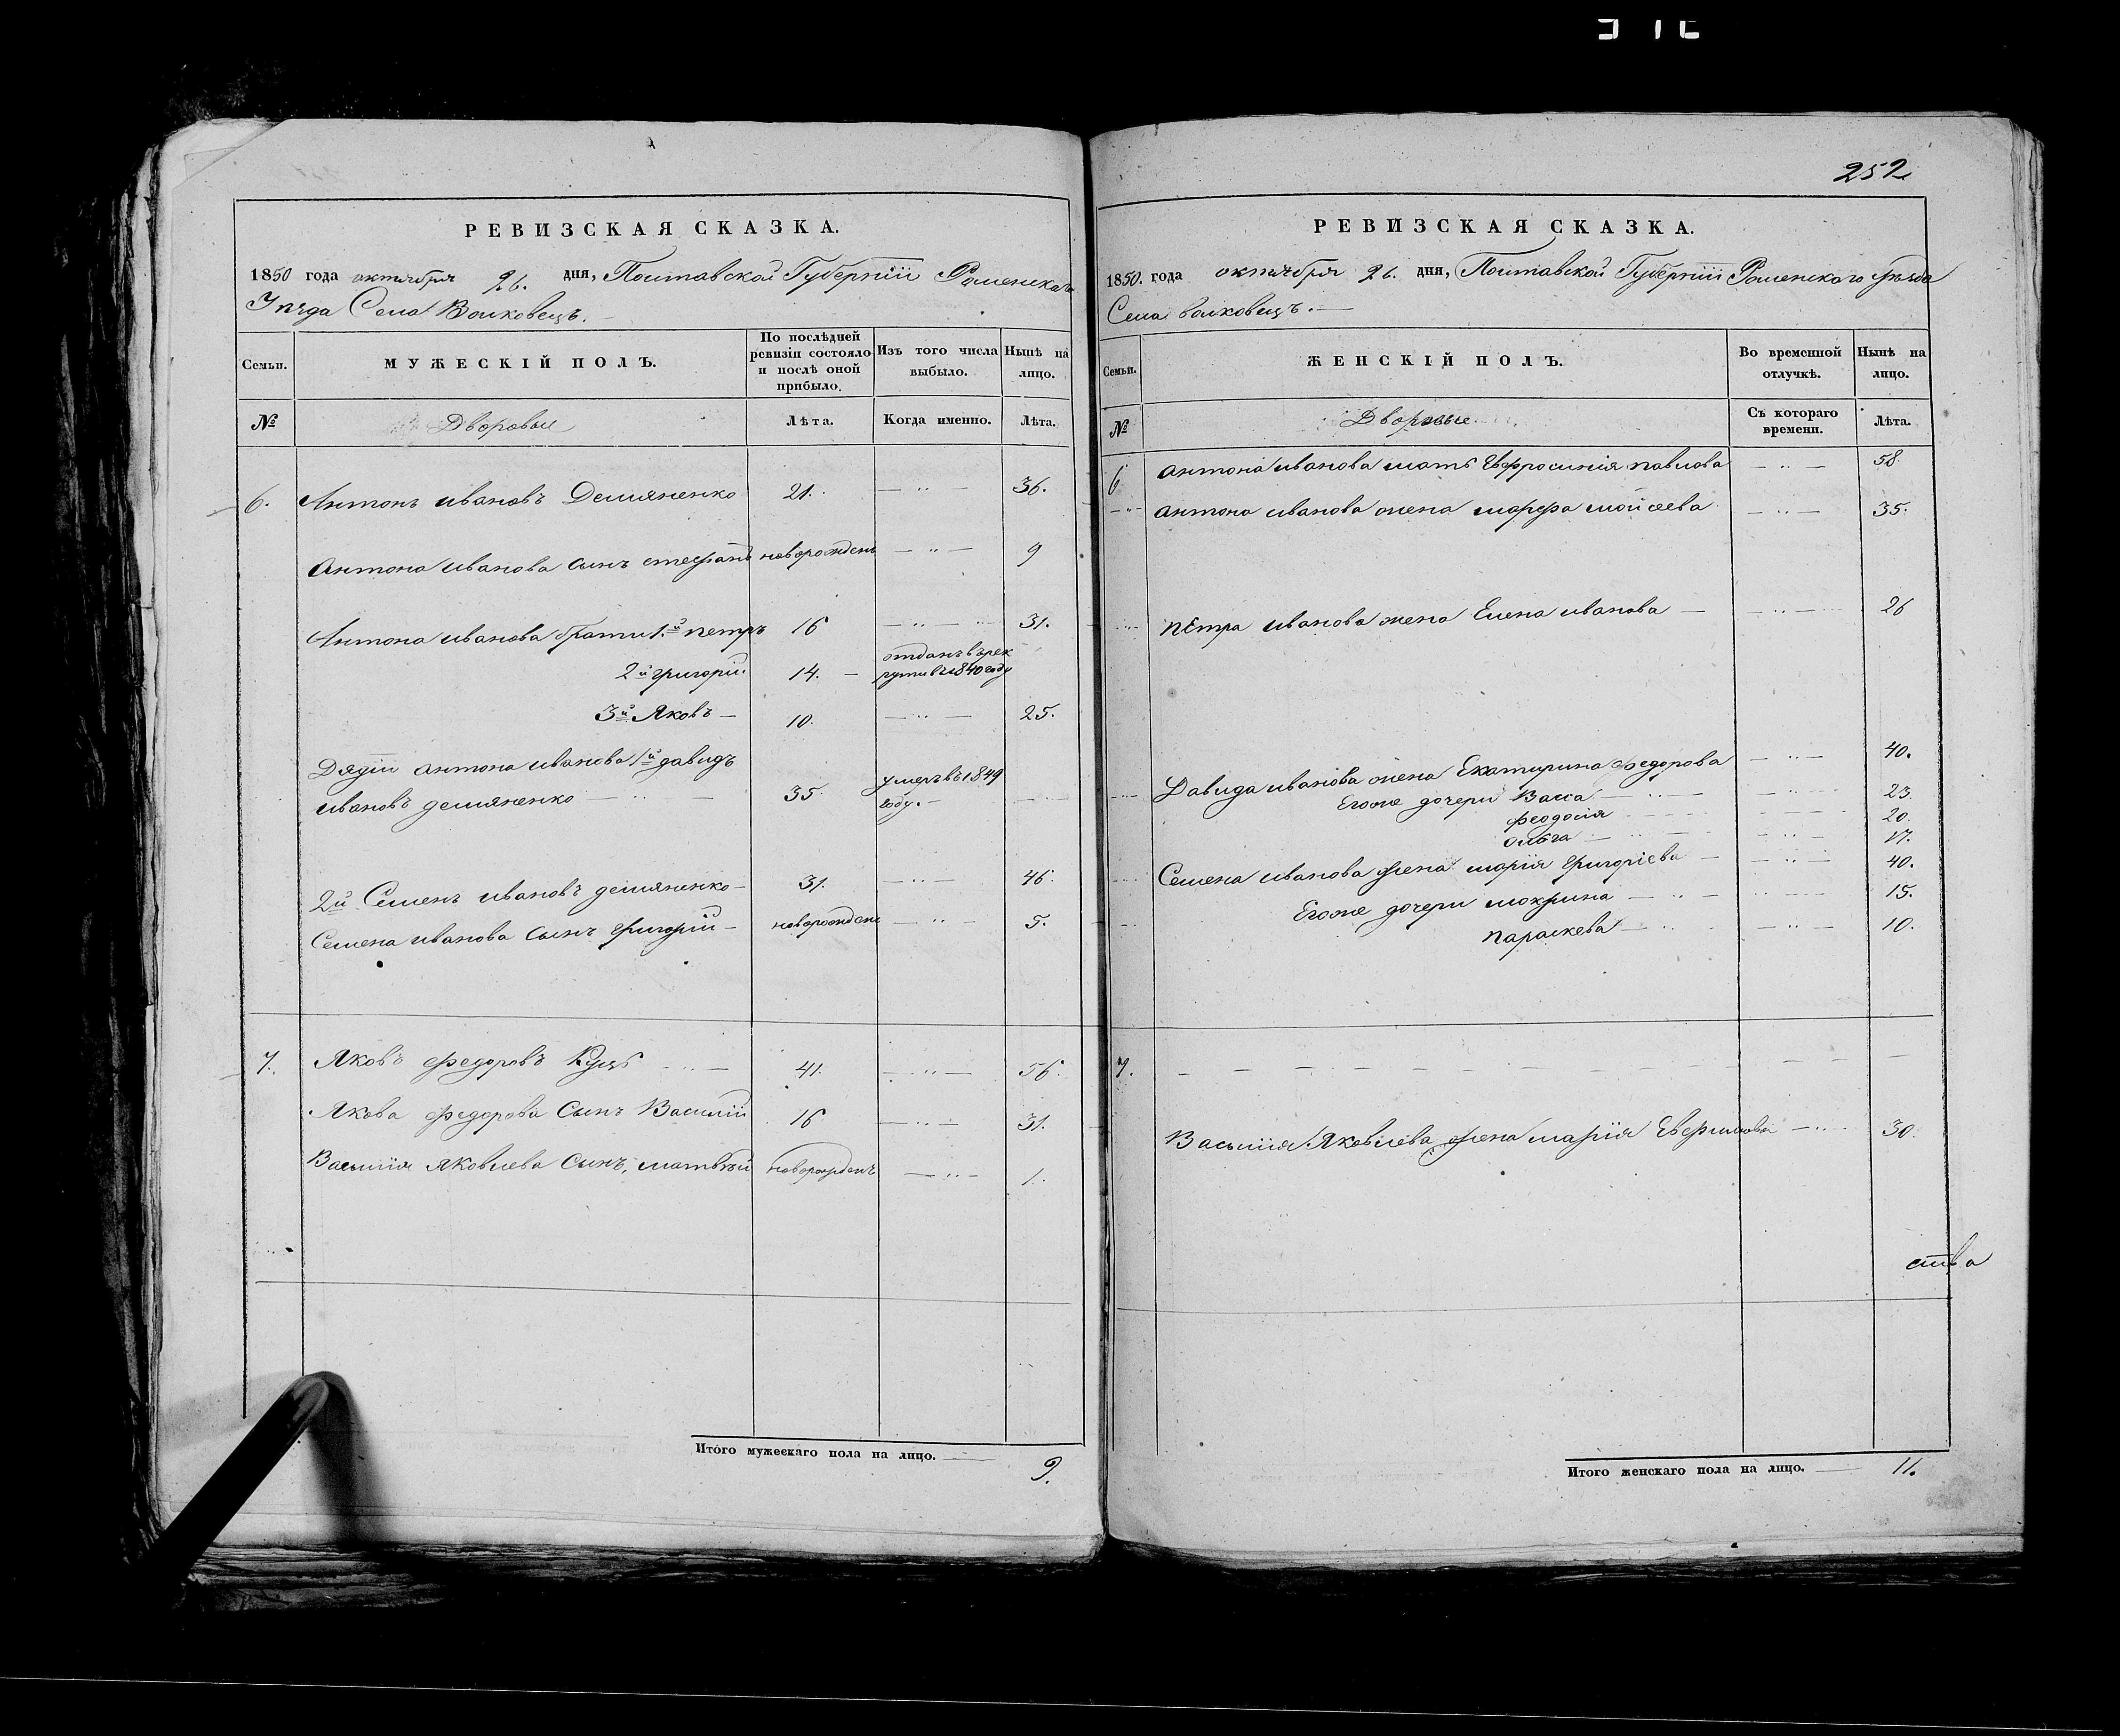 252
РЕВИЗСКАЯ СКАЗКА.
1850 года октября 26. дня, Полтавской Губерніи Роменскаго
Уѣзда Села Волковецъ.
Семьи.
МУЖЕСКІЙ ПОЛЪ.
По послѣдней ревизіи состояло и послѣ оной прибыло.
Изъ того числа выбыло.
Нынѣ на лицо.
№
Дворовые
Лѣта.
Когда именно.
Лѣта.
6. Антонъ Ивановъ Демяненко 21. — 〃 — 36.
Антона Иванова сынъ Стефанъ новорожденъ — 〃 — 9
Антона Иванова братья 1.й Петръ 16 — 〃 — 31.
отданъ въ рек
2й Григорій 14. — руты въ 1840 году
3й Яковъ — 10. — 〃 — 25.
Дядіи Антона Иванова 1й Давидъ
умеръ въ 1849
Ивановъ Демяненко — 〃 — 35. году. —
2й Семенъ Ивановъ Демяненко — 31. — 〃 — 46.
Семена Иванова сынъ Григорій — новорожденъ — 〃 — 5.
7. Яковъ Федоровъ Куцъ 41. — 〃 — 56.
Якова Федорова Сынъ Василій 16 — 〃 — 31.
Василія Яковлева Сынъ, Матвѣй новорожденъ — 〃 — 1.
Итого мужескаго пола на лицо. 9.
РЕВИЗСКАЯ СКАЗКА.
1850. года октября 26. дня, Полтавской Губерніи Роменскаго Уѣзда
Села Волковецъ. —
Семьи.
ЖЕНСКІЙ ПОЛЪ.
Во временной отлучкѣ.
Нынѣ на лицо.
№
Дворовые
Съ котораго времени.
Лѣта.
6 Антона Иванова мать Евфросинія Павлова — 〃 — 58.
— 〃 — Антона Иванова жена Марфа Мойсеева — 〃 — 35.
Петра Иванова жена Елена Иванова — — 〃 — 26
Давида Иванова жена Екатерина Федорова — 〃 — 40.
Егоже дочери Васса — 〃 — — 〃 — 23.
Феодосія 20.
Ольга — 〃 — — 〃 — 17.
Семена Иванова жена Марія Григоріева — — 〃 — 40.
Егоже дочери Мокрина — 〃 — 15.
Параскева — 〃 — 10.
7. — — — — —
Василія Яковлева жена Марія — 〃 — 30.
ства
Итого женскаго пола на лицо. 11.